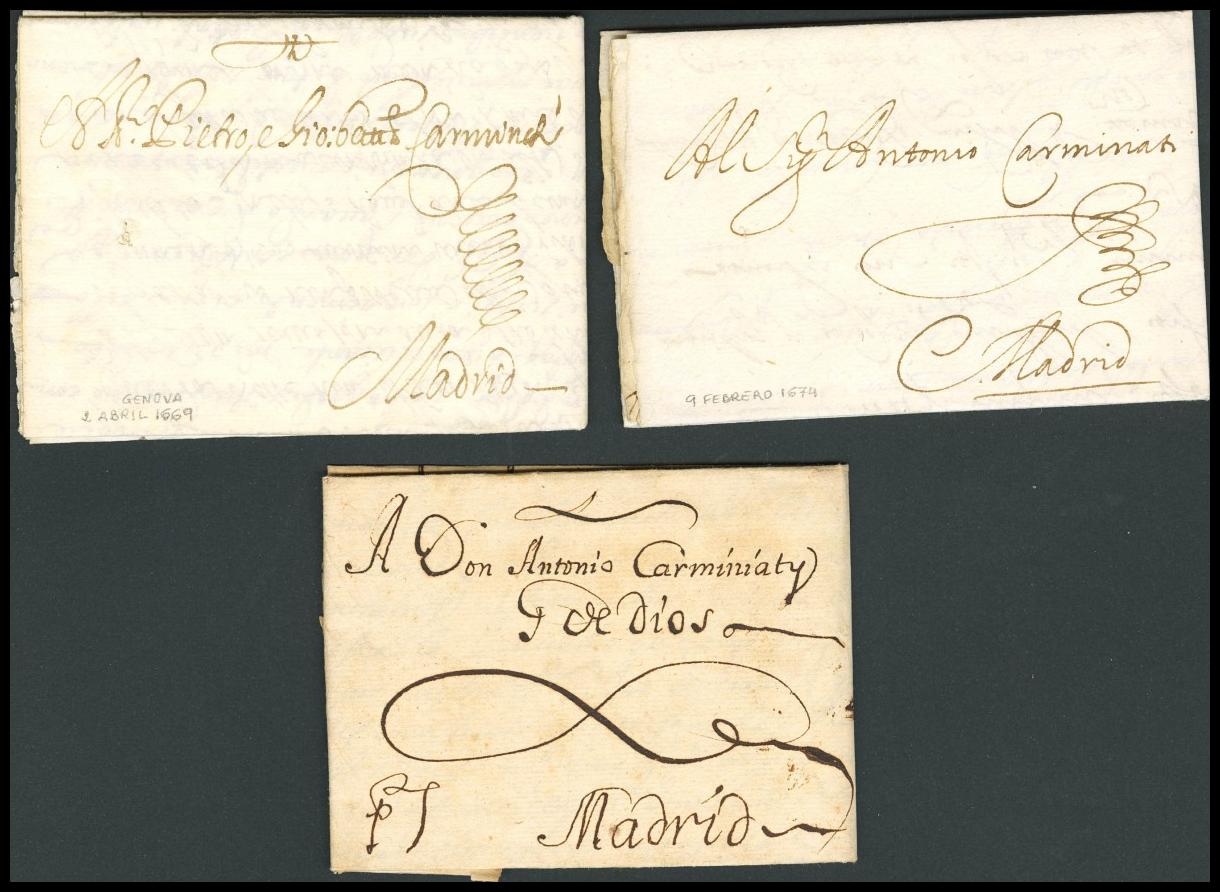 Pietro, e Gio: batta
Madrid
GENOVA
2 ABRIL 1669
Al Sigr Antonio Carminati
Madrid
9 FEBRERO 1674
A Don Antonio Carminiaty
G de Dios
Madrid